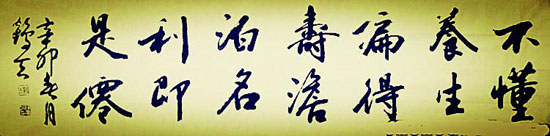 不懂
養生
偏得
壽澹
泊名
利即
是僊
辛卯春月